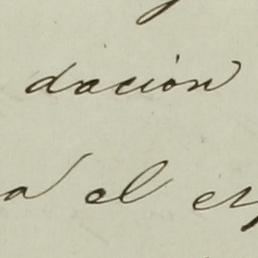 dacion
a el es